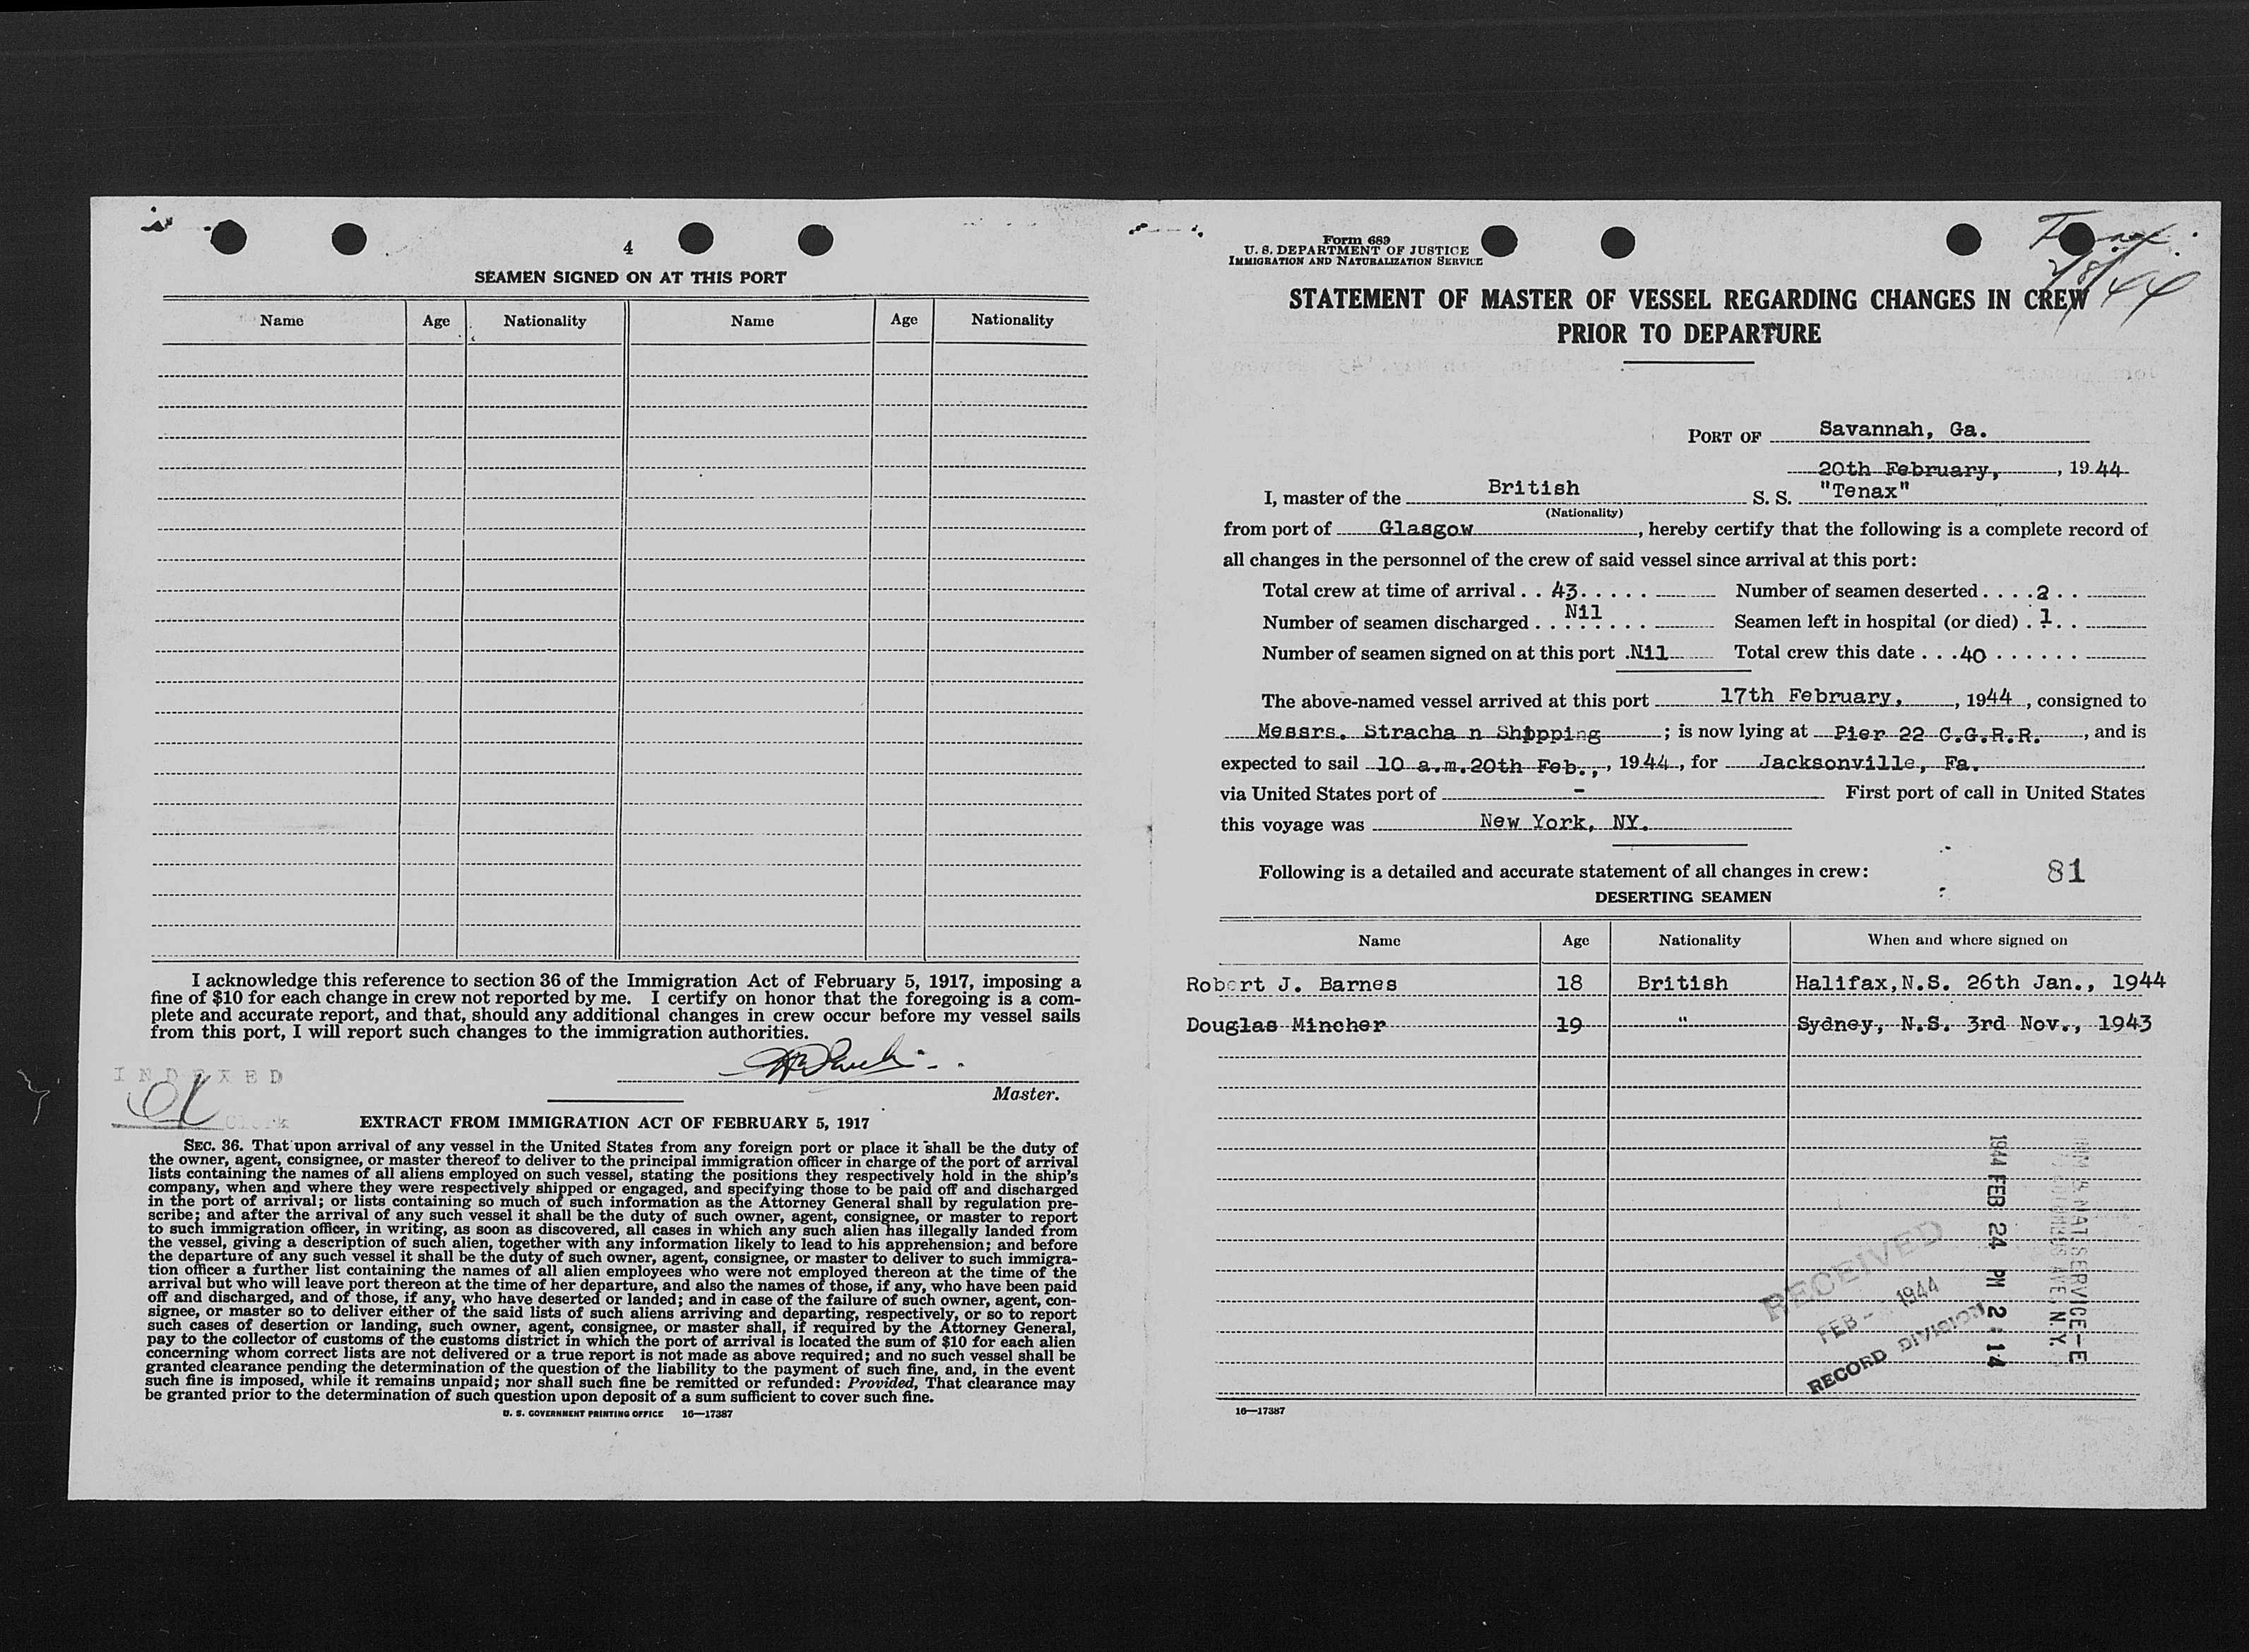 4
SEAMEN SIGNED ON AT THIS PORT
Name Age Nationality Name Age Nationality
I acknowledge this reference to section 36 of the Immigration Act of February 5, 1917, imposing a
fine of $10 for each change in crew not reported by me. I certify on honor that the foregoing is a com-
plete and accurate report, and that, should any additional changes in crew occur before my vessel sails
from this port, I will report such changes to the immigration authorities.
Master.
INDEXED
Clerk
EXTRACT FROM IMMIGRATION ACT OF FEBRUARY 5, 1917
SEC. 36. That upon arrival of any vessel in the United States from any foreign port or place it shall be the duty of
the owner, agent, consignee, or master thereof to deliver to the principal immigration officer in charge of the port of arrival
lists containing the names of all aliens employed on such vessel, stating the positions they respectively hold in the ship's
company, when and where they were respectively shipped or engaged, and specifying those to be paid off and discharged
in the port of arrival; or lists containing so much of such information as the Attorney General shall by regulation pre-
scribe; and after the arrival of any such vessel it shall be the duty of such owner, agent, consignee, or master to report
to such immigration officer, in writing, as soon as discovered, all cases in which any such alien has illegally landed from
the vessel, giving a description of such alien, together with any information likely to lead to his apprehension; and before
the departure of any such vessel it shall be the duty of such owner, agent, consignee, or master to deliver to such immigra-
tion officer a further list containing the names of all alien employees who were not employed thereon at the time of the
arrival but who will leave port thereon at the time of her departure, and also the names of those, if any, who have been paid
off and discharged, and of those, if any, who have deserted or landed; and in case of the failure of such owner, agent, con-
signee, or master so to deliver either of the said lists of such aliens arriving and departing, respectively, or so to report
such cases of desertion or landing, such owner, agent, consignee, or master shall, if required by the Attorney General,
pay to the collector of customs of the customs district in which the port of arrival is located the sum of $10 for each alien
concerning whom correct lists are not delivered or a true report is not made as above required; and no such vessel shall be
granted clearance pending the determination of the question of the liability to the payment of such fine, and, in the event
such fine is imposed, while it remains unpaid; nor shall such fine be remitted or refunded: Provided, That clearance may
be granted prior to the determination of such question upon deposit of a sum sufficient to cover such fine.
U. S. GOVERNMENT PRINTING OFFICE 16—17387
Form 689
U. S. DEPARTMENT OF JUSTICE
IMMIGRATION AND NATURALIZATION SERVICE
2/8/44
STATEMENT OF MASTER OF VESSEL REGARDING CHANGES IN CREW
PRIOR TO DEPARTURE
PORT OF Savannah, Ga.
20th February, , 1944
I, master of the British S. S. "Tenax"
(Nationality)
from port of Glasgow , hereby certify that the following is a complete record of
all changes in the personnel of the crew of said vessel since arrival at this port:
Total crew at time of arrival . . 43 . . . . . Number of seamen deserted . . . . 2 . .
Number of seamen discharged . . Nil . . . Seamen left in hospital (or died) . 1 . .
Number of seamen signed on at this port . Nil Total crew this date . . . 40 . . . . . .
The above-named vessel arrived at this port 17th February, , 1944 , consigned to
Messrs. Stracha n Shipping ; is now lying at Pier 22 C.G.R.R. , and is
expected to sail 10 a.m.20th Feb., , 1944 , for Jacksonville, Fa.
via United States port of - First port of call in United States
this voyage was New York, NY.
Following is a detailed and accurate statement of all changes in crew: 81
DESERTING SEAMEN
Name Age Nationality When and where signed on
Robert J. Barnes 18 British Halifax,N.S. 26th Jan., 1944
Douglas Mincher 19 " Sydney, N.S. 3rd Nov., 1943
RECEIVED
FEB - 1944
RECORD DIVISION
1944 FEB 24 PM 2:14
IMM. & NAT. SERVICE—E
AVE, N.Y.
16—17387